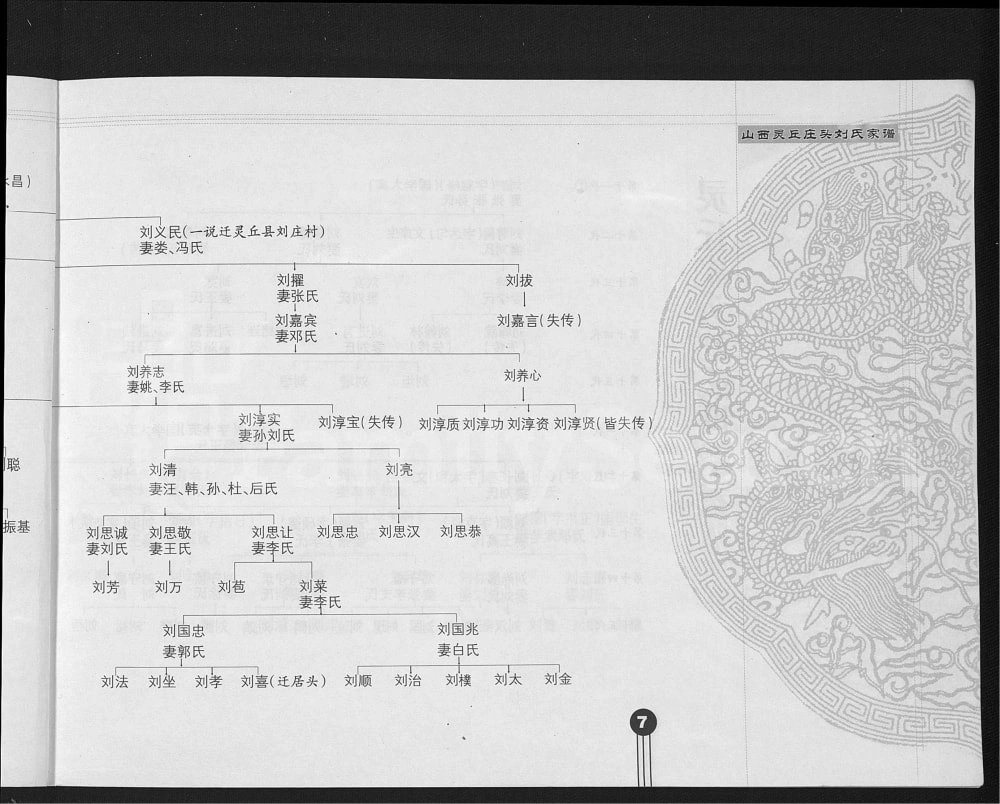 山西灵丘庄头刘氏家谱
昌)
刘义民(一说迁灵丘县刘庄村)
妻娄、冯氏
刘擢 刘拔
妻张氏
刘嘉宾 刘嘉言(失传)
妻邓氏
刘养志 刘养心
妻姚、李氏
刘淳实 刘淳宝(失传) 刘淳质 刘淳功 刘淳资 刘淳贤(皆失传)
妻孙刘氏
聪 刘清 刘亮
妻汪、韩、孙、杜、后氏
振基 刘思诚 刘思敬 刘思让 刘思忠 刘思汉 刘思恭
妻刘氏 妻王氏 妻李氏
刘芳 刘万 刘苞 刘菜
妻李氏
刘国忠 刘国兆
妻郭氏 妻白氏
刘法 刘坐 刘孝 刘喜(迁居头) 刘顺 刘治 刘樸 刘太 刘金
7